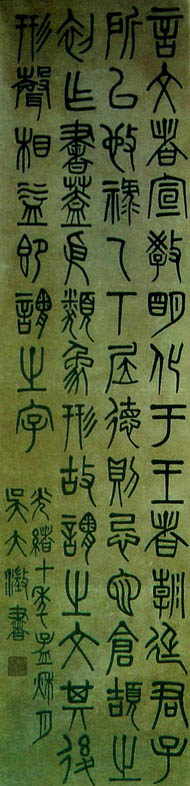 言文者宣教明化于王者朝廷君子
所以施祿及下居德則忌也倉頡之
初作書蓋依類象形故謂之文其後
形聲相益即謂之字
光緒十年孟秋月
吳大澂書